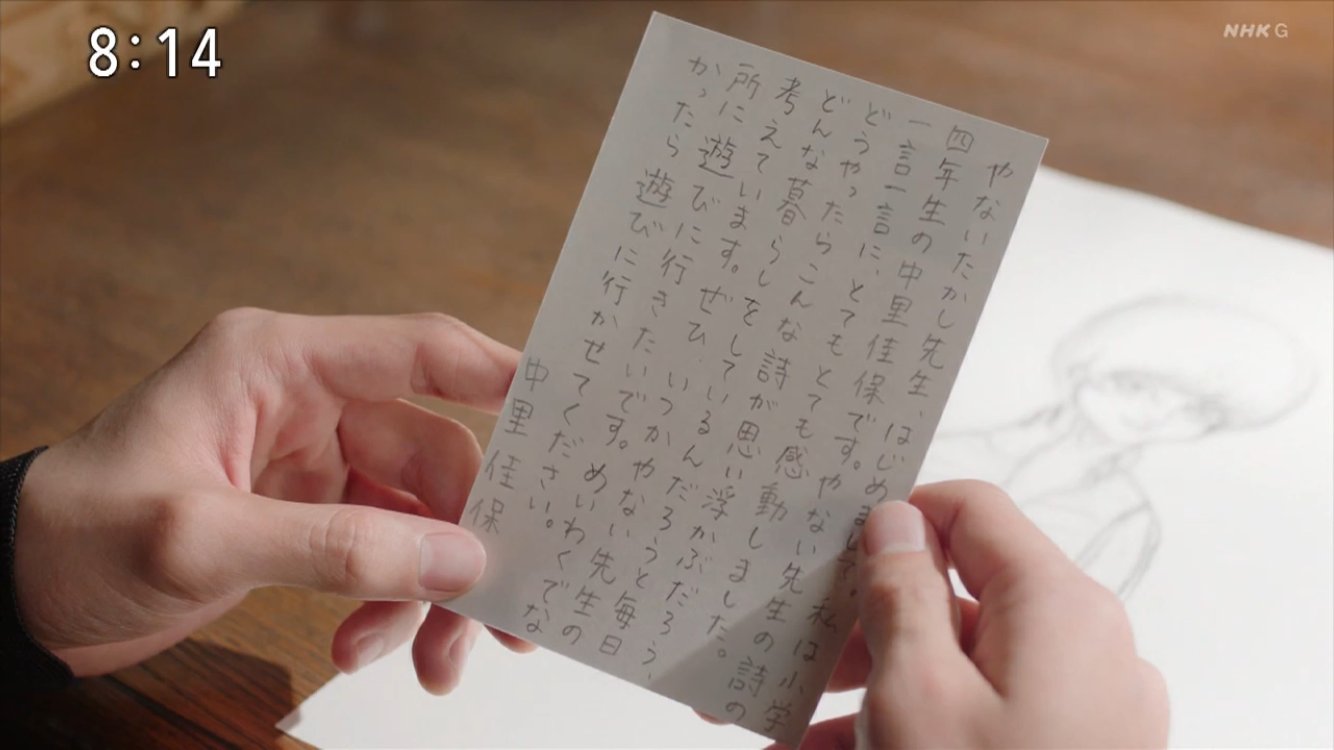 8:14
NHK G
やないたかし先生、はじめまして。私は小学
四年生の中里佳保です。やない先生の詩の
一言一言に、とてもとても感動しました。
どうやったらこんな詩が思い浮かぶだろう、
どんな暮らしをしているんだろうと毎日
考えています。ぜひ、いつかやない先生の
所に遊びに行きたいです。めいわくでな
かったら遊びに行かせてください。
中里佳保